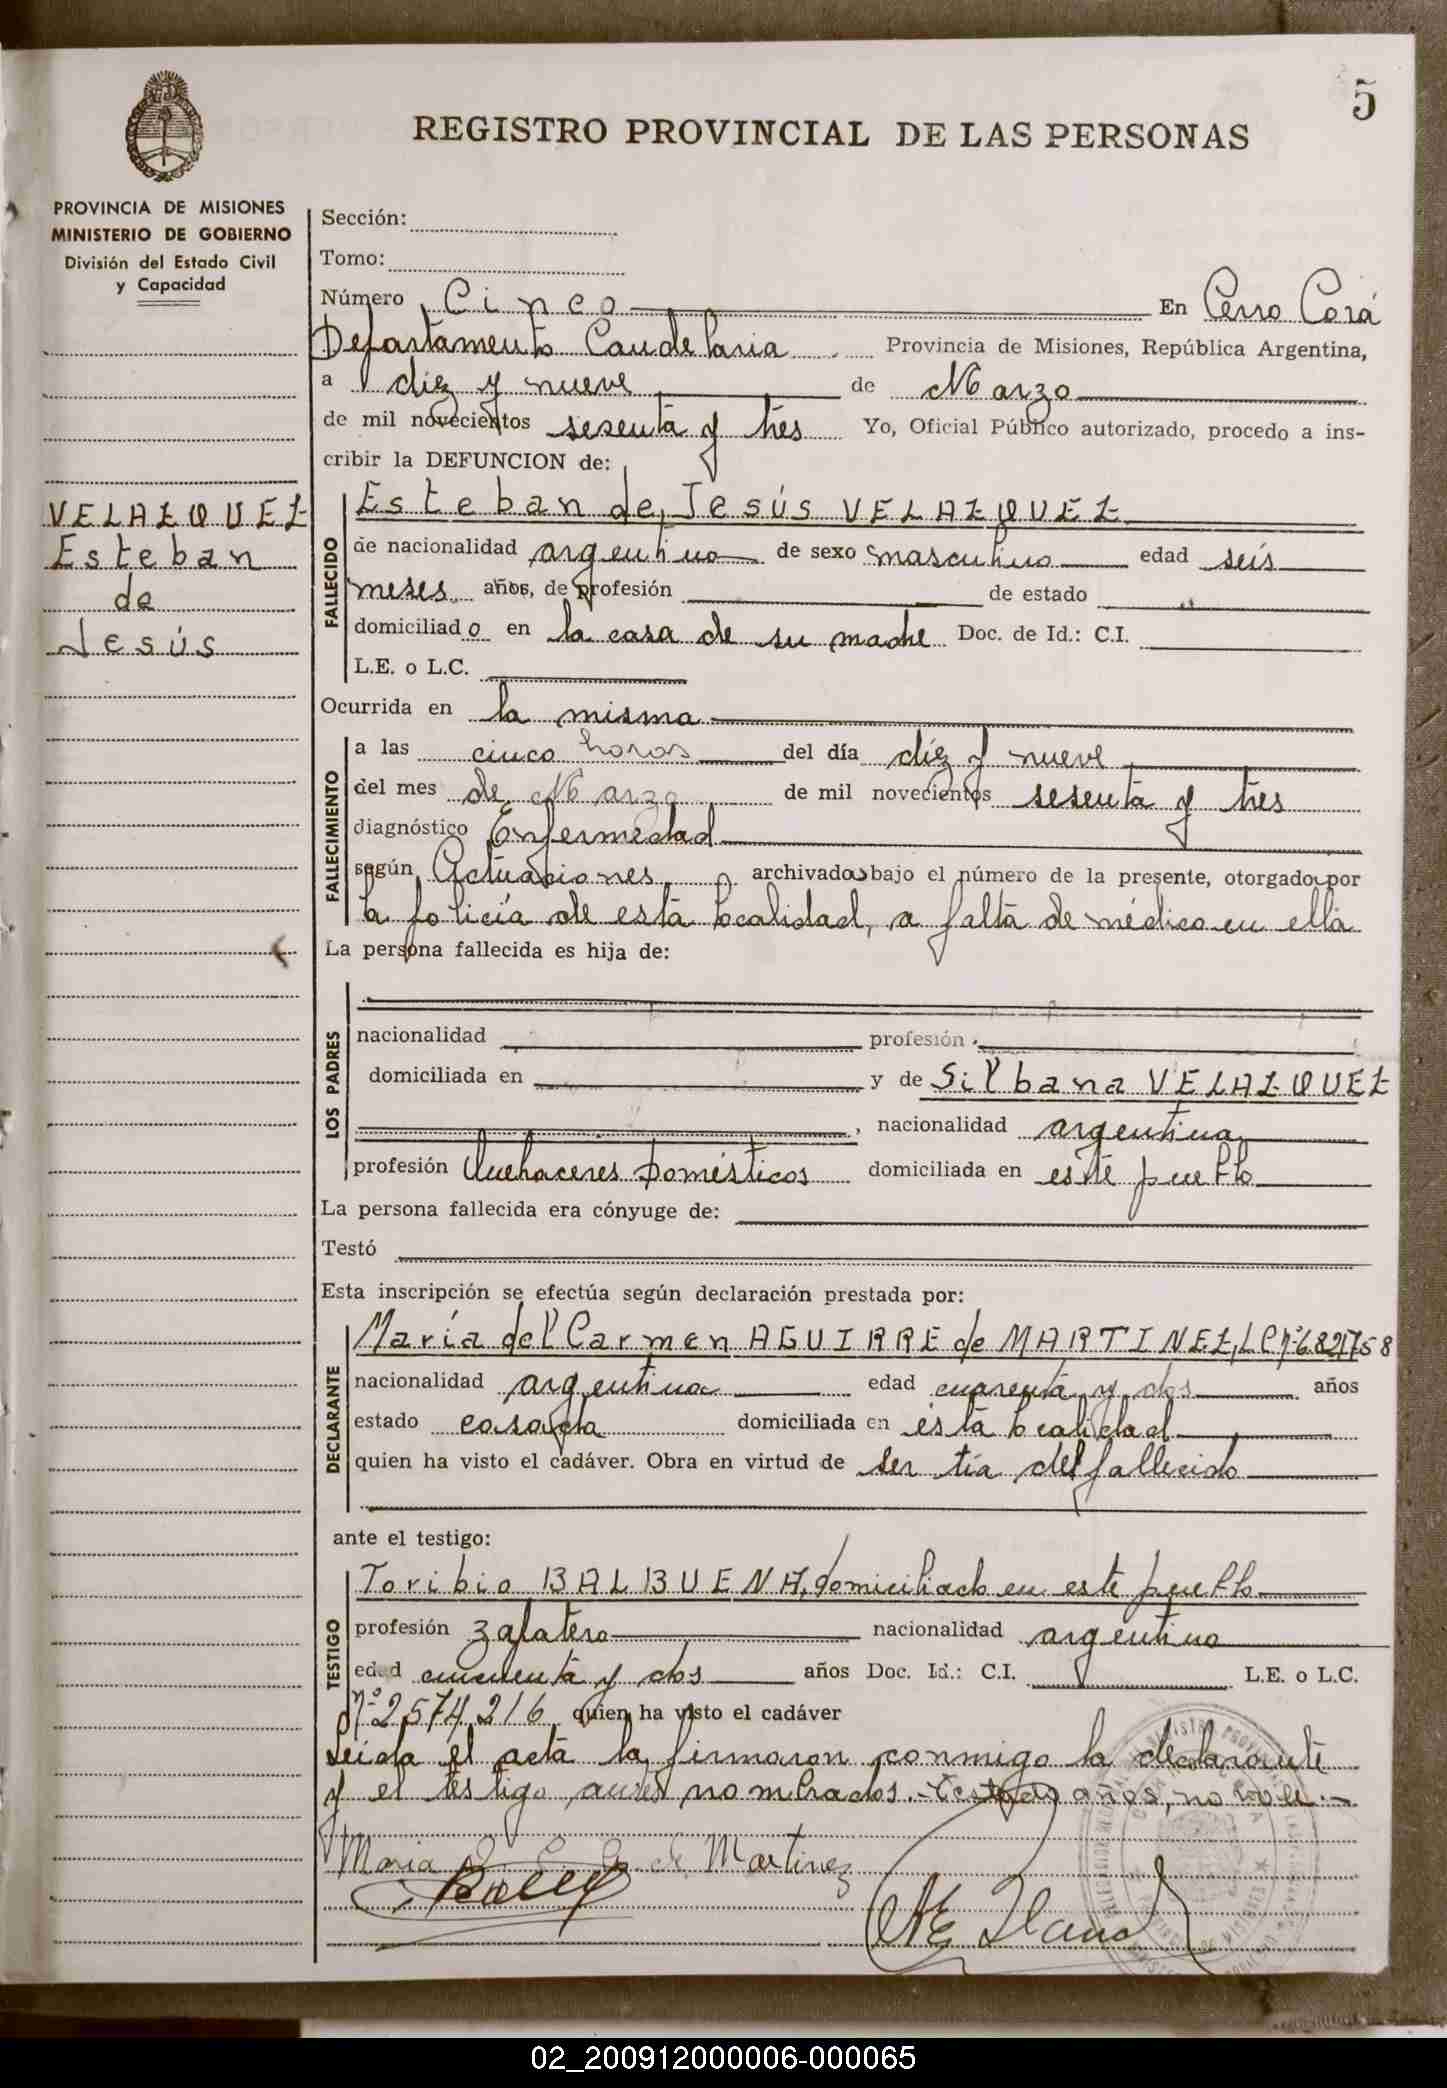 5
REGISTRO PROVINCIAL DE LAS PERSONAS
PROVINCIA DE MISIONES
MINISTERIO DE GOBIERNO
División del Estado Civil
y Capacidad
VELAZQUEZ
Esteban
de
Jesús
Sección:
Tomo:
Número Cinco En Cerro Corá
Departamento Candelaria Provincia de Misiones, República Argentina,
a diez y nueve de Marzo
de mil novecientos sesenta y tres Yo, Oficial Público autorizado, procedo a ins-
cribir la DEFUNCION de:
FALLECIDO
Esteban de Jesús VELAZQUEZ
de nacionalidad argentino de sexo masculino edad seis
meses años, de profesión de estado
domiciliado en la casa de su madre Doc. de Id.: C.I.
L.E. o L.C.
Ocurrida en la misma
FALLECIMIENTO
a las cinco horas del día diez y nueve
del mes de Marzo de mil novecientos sesenta y tres
diagnóstico Enfermedad
según Actuaciones archivadas bajo el número de la presente, otorgado por
la policía de esta localidad, a falta de médico en ella
La persona fallecida es hija de:
LOS PADRES
nacionalidad profesión
domiciliada en y de Silbana VELAZQUEZ
, nacionalidad argentina
profesión Quehaceres Domésticos domiciliada en este pueblo
La persona fallecida era cónyuge de:
Testó
Esta inscripción se efectúa según declaración prestada por:
DECLARANTE
María del Carmen AGUIRRE de MARTINEZ, LC Nº 6821758
nacionalidad argentina edad cuarenta y dos años
estado casada domiciliada en esta localidad
quien ha visto el cadáver. Obra en virtud de ser tía del fallecido
ante el testigo:
TESTIGO
Toribio BALBUENA, domiciliado en este pueblo
profesión zapatero nacionalidad argentino
edad cincuenta y dos años Doc. Id.: C.I. L.E. o L.C.
Nº 2574216 quien ha visto el cadáver
Leida el acta la firmaron conmigo la declarante
y el testigo antes nombrados.- Testado años, no vale.-
Maria de Martinez
02_200912000006-000065